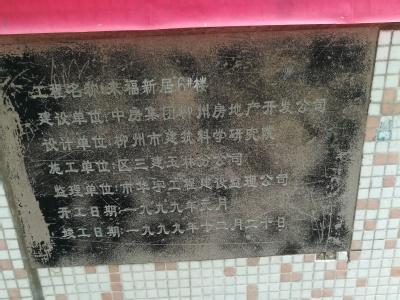 工程名称:来福新居6#楼
建设单位:中房集团柳州房地产开发公司
设计单位:柳州市建筑科学研究院
施工单位:区三建五分公司
监理单位:市华宇工程建设监理公司
开工日期:一九九九年三月
竣工日期:一九九九年十二月二十日